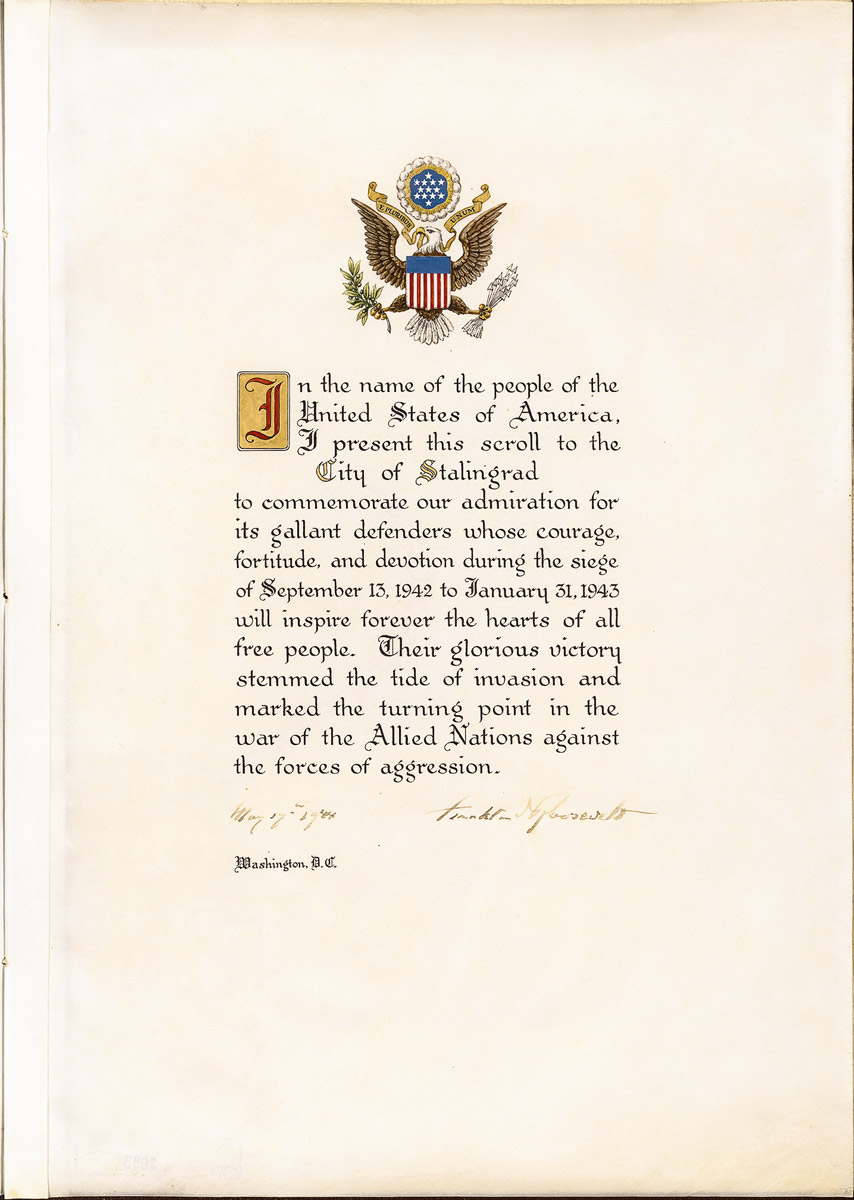 E PLURIBUS UNUM
In the name of the people of the
United States of America,
I present this scroll to the
City of Stalingrad
to commemorate our admiration for
its gallant defenders whose courage,
fortitude, and devotion during the siege
of September 13, 1942 to January 31, 1943
will inspire forever the hearts of all
free people. Their glorious victory
stemmed the tide of invasion and
marked the turning point in the
war of the Allied Nations against
the forces of aggression.
May 17th 1944 Franklin D Roosevelt
Washington, D.C.